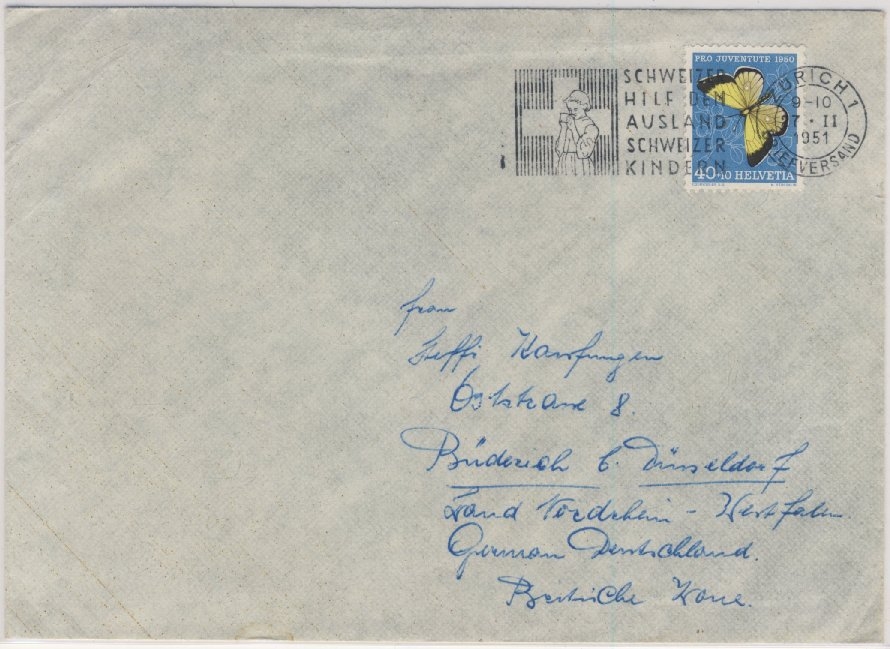 PRO JUVENTUTE 1950
40+10 HELVETIA
SCHWEIZER
HILF DEN
AUSLAND
SCHWEIZER
KINDERN
ZÜRICH 1
9-10
1951
BRIEFVERSAND
Frau
Steffi Kaufungen
Oststrasse 8.
Büderich b. Düsseldorf
Land Nordrhein - Westfalen.
German Deutschland.
Britische Zone.